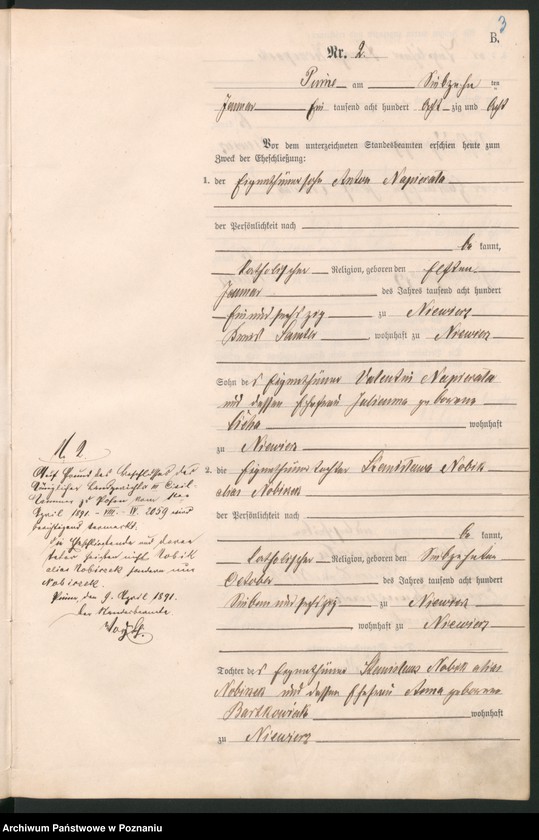 3
B.
Nr. 2.
Pinne am Siebzehn ten
Januar Ein tausend acht hundert Acht zig und Acht
Vor dem unterzeichneten Standesbeamten erschien heute zum
Zweck der Eheschließung:
1. der Eigenthümersohn Anton Napierala
der Persönlichkeit nach
be kannt,
Katholischer Religion, geboren den Elften
Januar des Jahres tausend acht hundert
Ein und sechszig zu Niewierz
Kreis Samter, wohnhaft zu Niewierz
Sohn des Eigenthümer Valentin Napierala
und dessen Ehefrau Julianna geborene
Cicha wohnhaft
zu Niewierz
2. die Eigenthümertochter Stanislawa Nobik
alias Nobiszek
der Persönlichkeit nach
be kannt,
katholischer Religion, geboren den Siebzehnten
October des Jahres tausend acht hundert
Sieben und sechszig zu Niewierz
, wohnhaft zu Niewierz
Tochter des Eigenthümer Stanislaus Nobik alias
und dessen Ehefrau Anna geborene
Bartkowiak wohnhaft
zu Niewierz
N 2.
Auf Grund des Beschlusses des
Königlichen Landgerichts III Civil
kammer zu Posen vom
April 1891 - VIII - IV. 2059 wird
berichtigend vermerkt:
Die Eheschließende und deren
Vater heißen nicht Nobik
alias sondern nur
Pinne, den 9. April 1891.
Der Standesbeamte
Archiwum Państwowe w Poznaniu